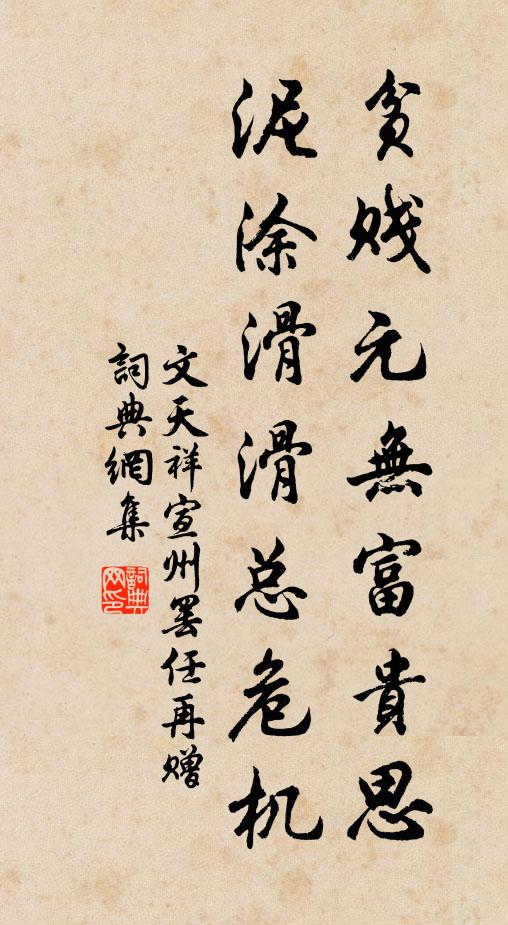 贫贱元無富貴思
泥涂滑滑总危机
文天祥宣州罢任再赠
詞典網集
詞典网印